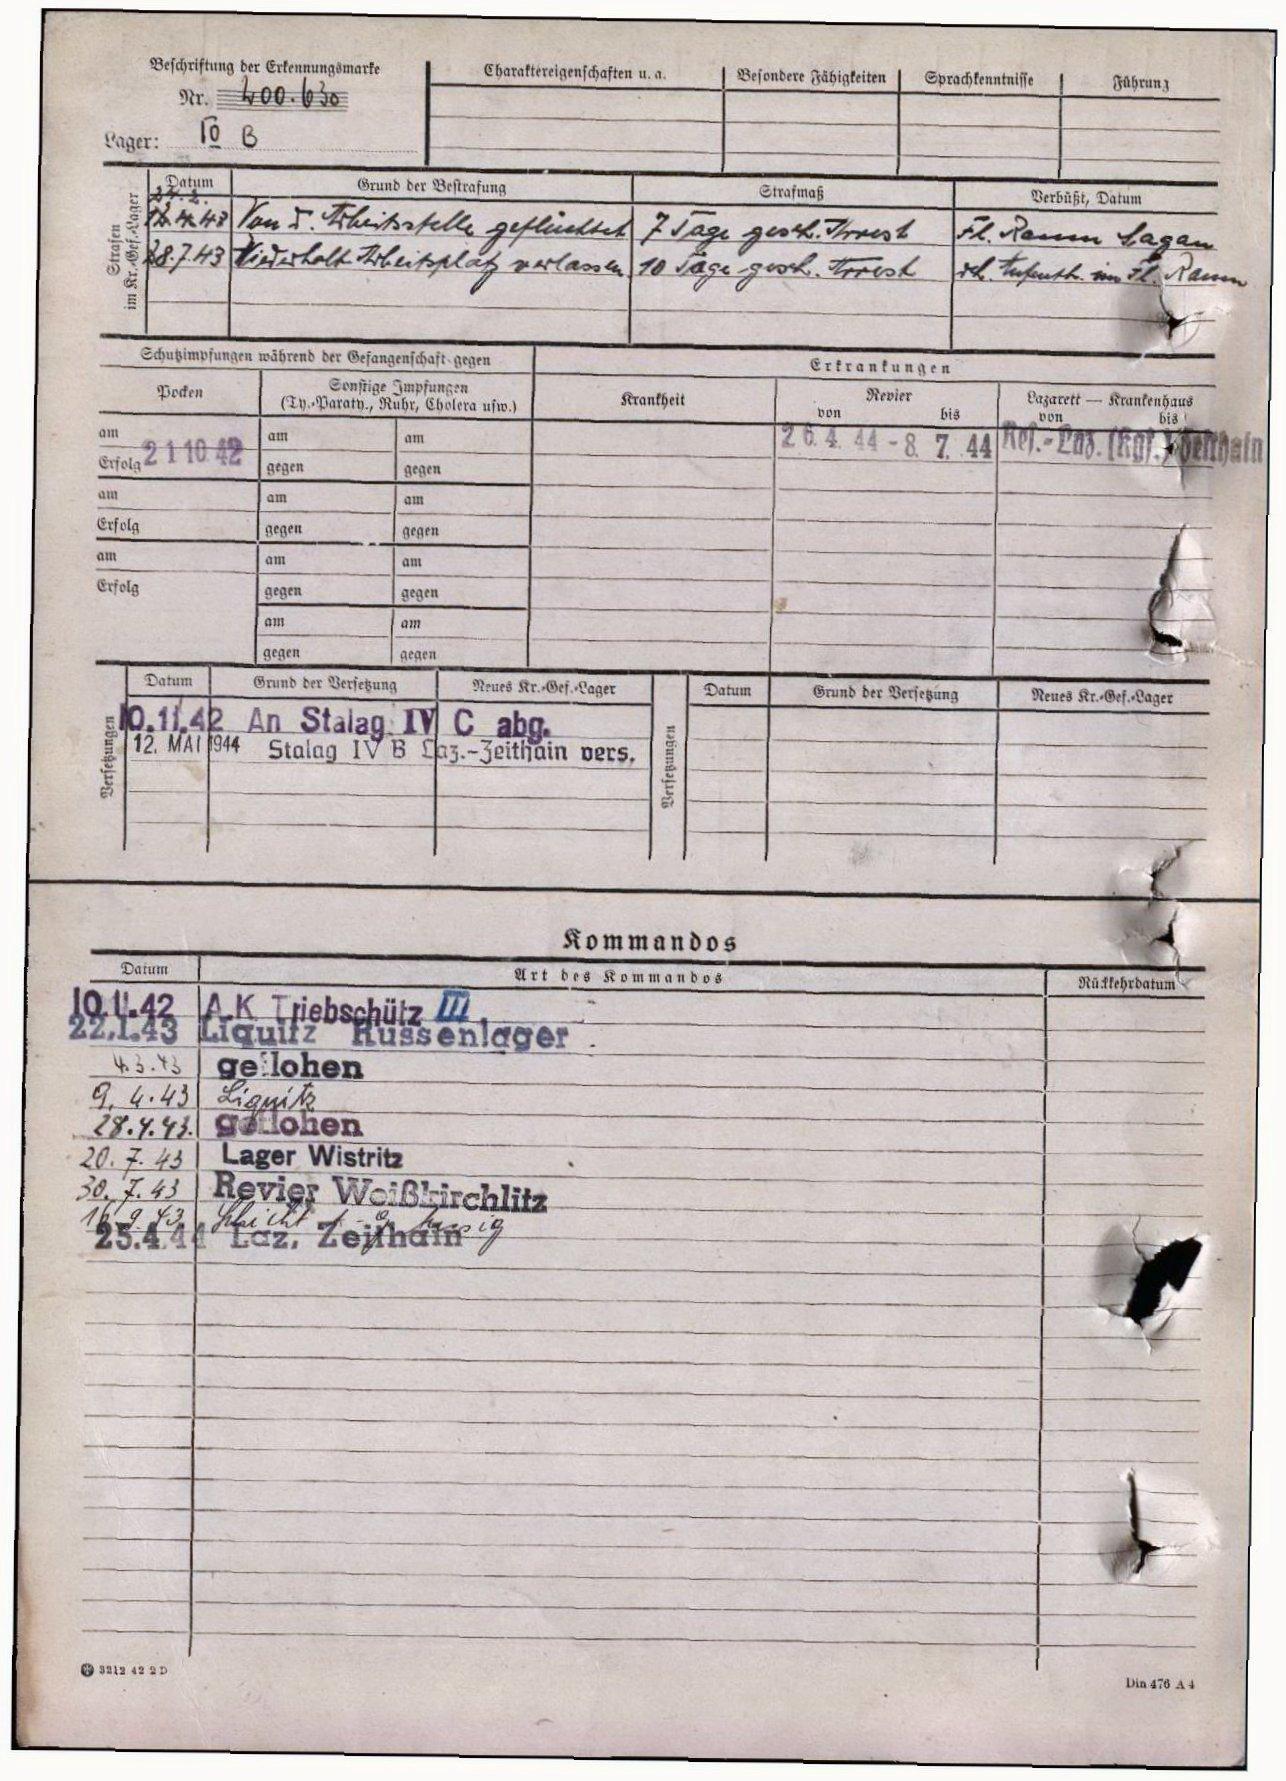 Beschriftung der Erkennungsmarke
Nr. 200.630
Lager: IV B
Charaktereigenschaften u. a.
Besondere Fähigkeiten
Sprachkenntnisse
Führung
Strafen
im Kr.-Gef.-Lager
Datum
Grund der Bestrafung
Strafmaß
Verbüßt, Datum
24.2.
Von d. Arbeitsstelle geflüchtet
7 Tage gesch. Arrest
Fl. Raum Sagan
28.7.43
Wiederholt Arbeitsplatz verlassen
10 Tage gesch. Arrest
im Fl. Raum
Schutzimpfungen während der Gefangenschaft gegen
Erkrankungen
Pocken
Sonstige Impfungen
(Ty.-Paraty., Ruhr, Cholera usw.)
Krankheit
Revier
von bis
Lazarett — Krankenhaus
von bis
am
Erfolg
21 10. 42
am
gegen
am
gegen
26. 4. 44 - 8. 7. 44
Res.-Laz. (Kgf.) Zeithain
am
Erfolg
am
gegen
am
gegen
am
Erfolg
am
gegen
am
gegen
am
gegen
am
gegen
Versetzungen
Datum
Grund der Versetzung
Neues Kr.-Gef.-Lager
10.11.42 An Stalag IV C abg.
12. MAI 1944 Stalag IV B Laz.-Zeithain vers.
Versetzungen
Datum
Grund der Versetzung
Neues Kr.-Gef.-Lager
Kommandos
Datum
Art des Kommandos
Rückkehrdatum
10.11.42 A.K Triebschütz III
22.1.43 Liquitz Russenlager
4.3.43 geflohen
9. 4.43 Liquitz
28.4.43. geflohen
20. 7. 43 Lager Wistritz
30. 7. 43 Revier Weißkirchlitz
16.9.43
25.4.44 Laz. Zeithain
3212 42 2 D
Din 476 A 4